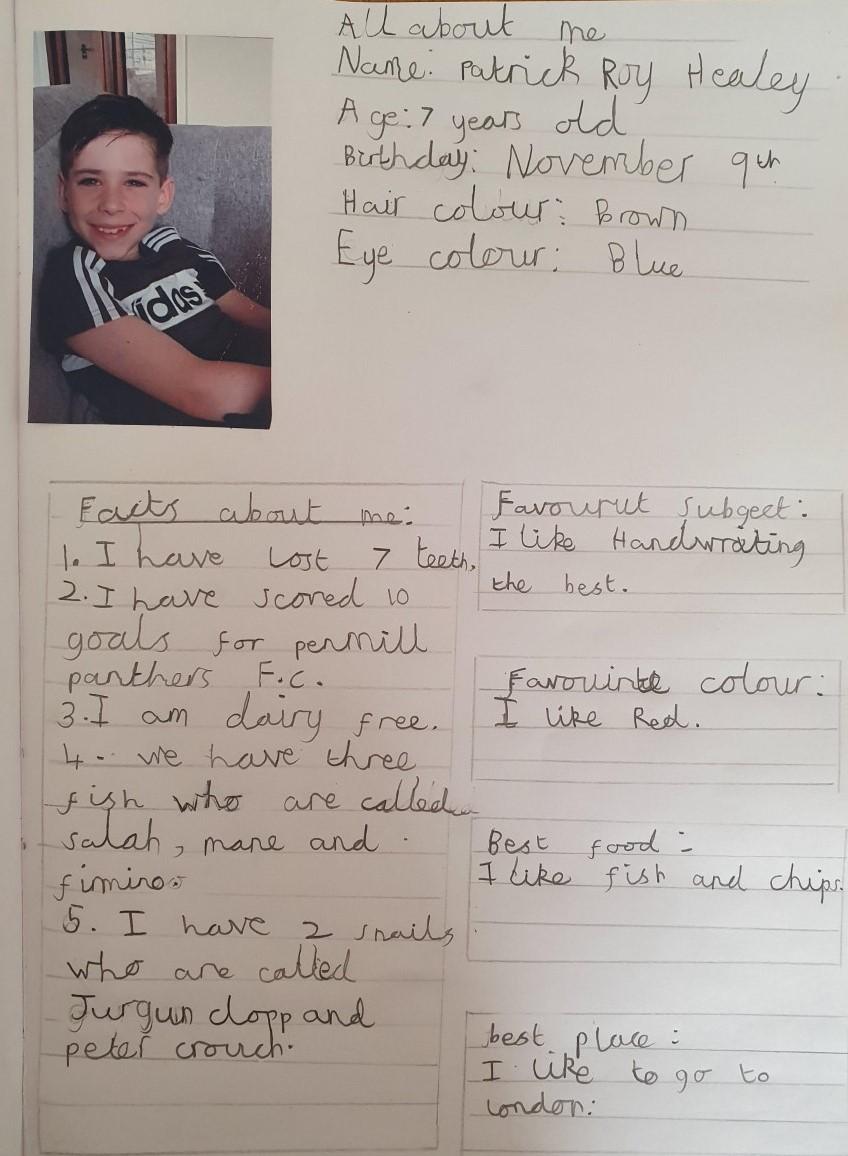 All about me
Name: Patrick Roy Healey
Age: 7 years old
Birthday: November 9th
Hair colour: Brown
Eye colour: Blue
idas
Facts about me:
1. I have lost 7 teeth.
2. I have scored 10
goals for penmill
panthers F.C.
3. I am dairy free.
4. we have three
fish who are called
salah, mane and
fimino.
5. I have 2 snails
who are called
Jurgun clopp and
peter crouch.
Favourut subgect:
I like Handwrating
the best.
Favouinte colour:
I like Red.
Best food -
I like fish and chips.
best place:
I like to go to
london: